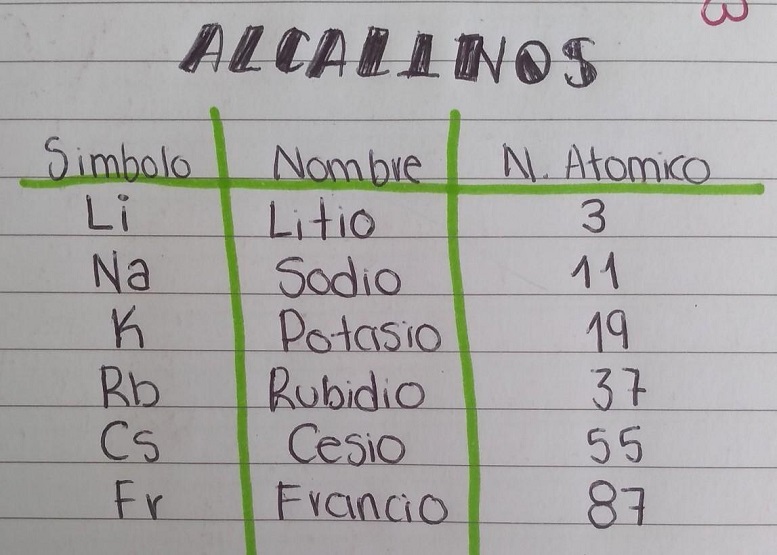 ALCALINOS
Simbolo Nombre N. Atomico
Li Litio 3
Na Sodio 11
K Potasio 19
Rb Rubidio 37
Cs Cesio 55
Fr Francio 87